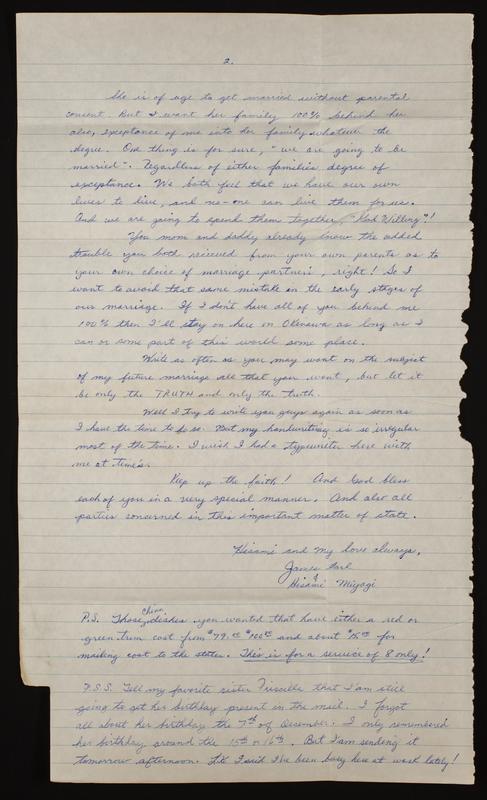 2.
She is of age to get married without parental
consent. But I want her family 100% behind her
also, exceptance of me into her family whatever the
degree. One thing is for sure, "we are going to be
married". Regardless of either families degree of
exceptance. We both feel that we have our own
lives to live, and no-one can live them for us.
And we are going to spend them together, "God Willing"!
You mom and daddy already know the added
trouble you both recieved from your own parents as to
your own choice of marriage partners, right! So I
want to avoid that same mistake in the early stages of
our marriage. If I don't have all of you behind me
100% then I'll stay on here on Okinawa as long as I
can or some part of this world some place.
Write as often as you may want on the subject
of my future marriage all that you want, but let it
be only the TRUTH and only the truth.
Well I try to write you guys again as soon as
I have the time to do so. But my handwriting is so irregular
most of the time. I wish I had a typewriter here with
me at times.
Keep up the faith! And God bless
each of you in a very special manner. And also all
parties concerned in this important matter of state.
Hisami and my love always,
James Earl
&
Hisami Miyagi
P.S. Those China dishes you wanted that have either a red or
green trim cost from $79.00 $100.00 and about $15.00 for
mailing cost to the states. This is for a service of 8 only!
P.S.S. Tell my favorite sister Priscilla that I am still
going to get her birthday present in the mail. I forgot
all about her birthday the 7th of December. I only remembered
her birthday around the 15th or 16th. But I am sending it
tomorrow afternoon. Like I said I've been busy here at work lately!